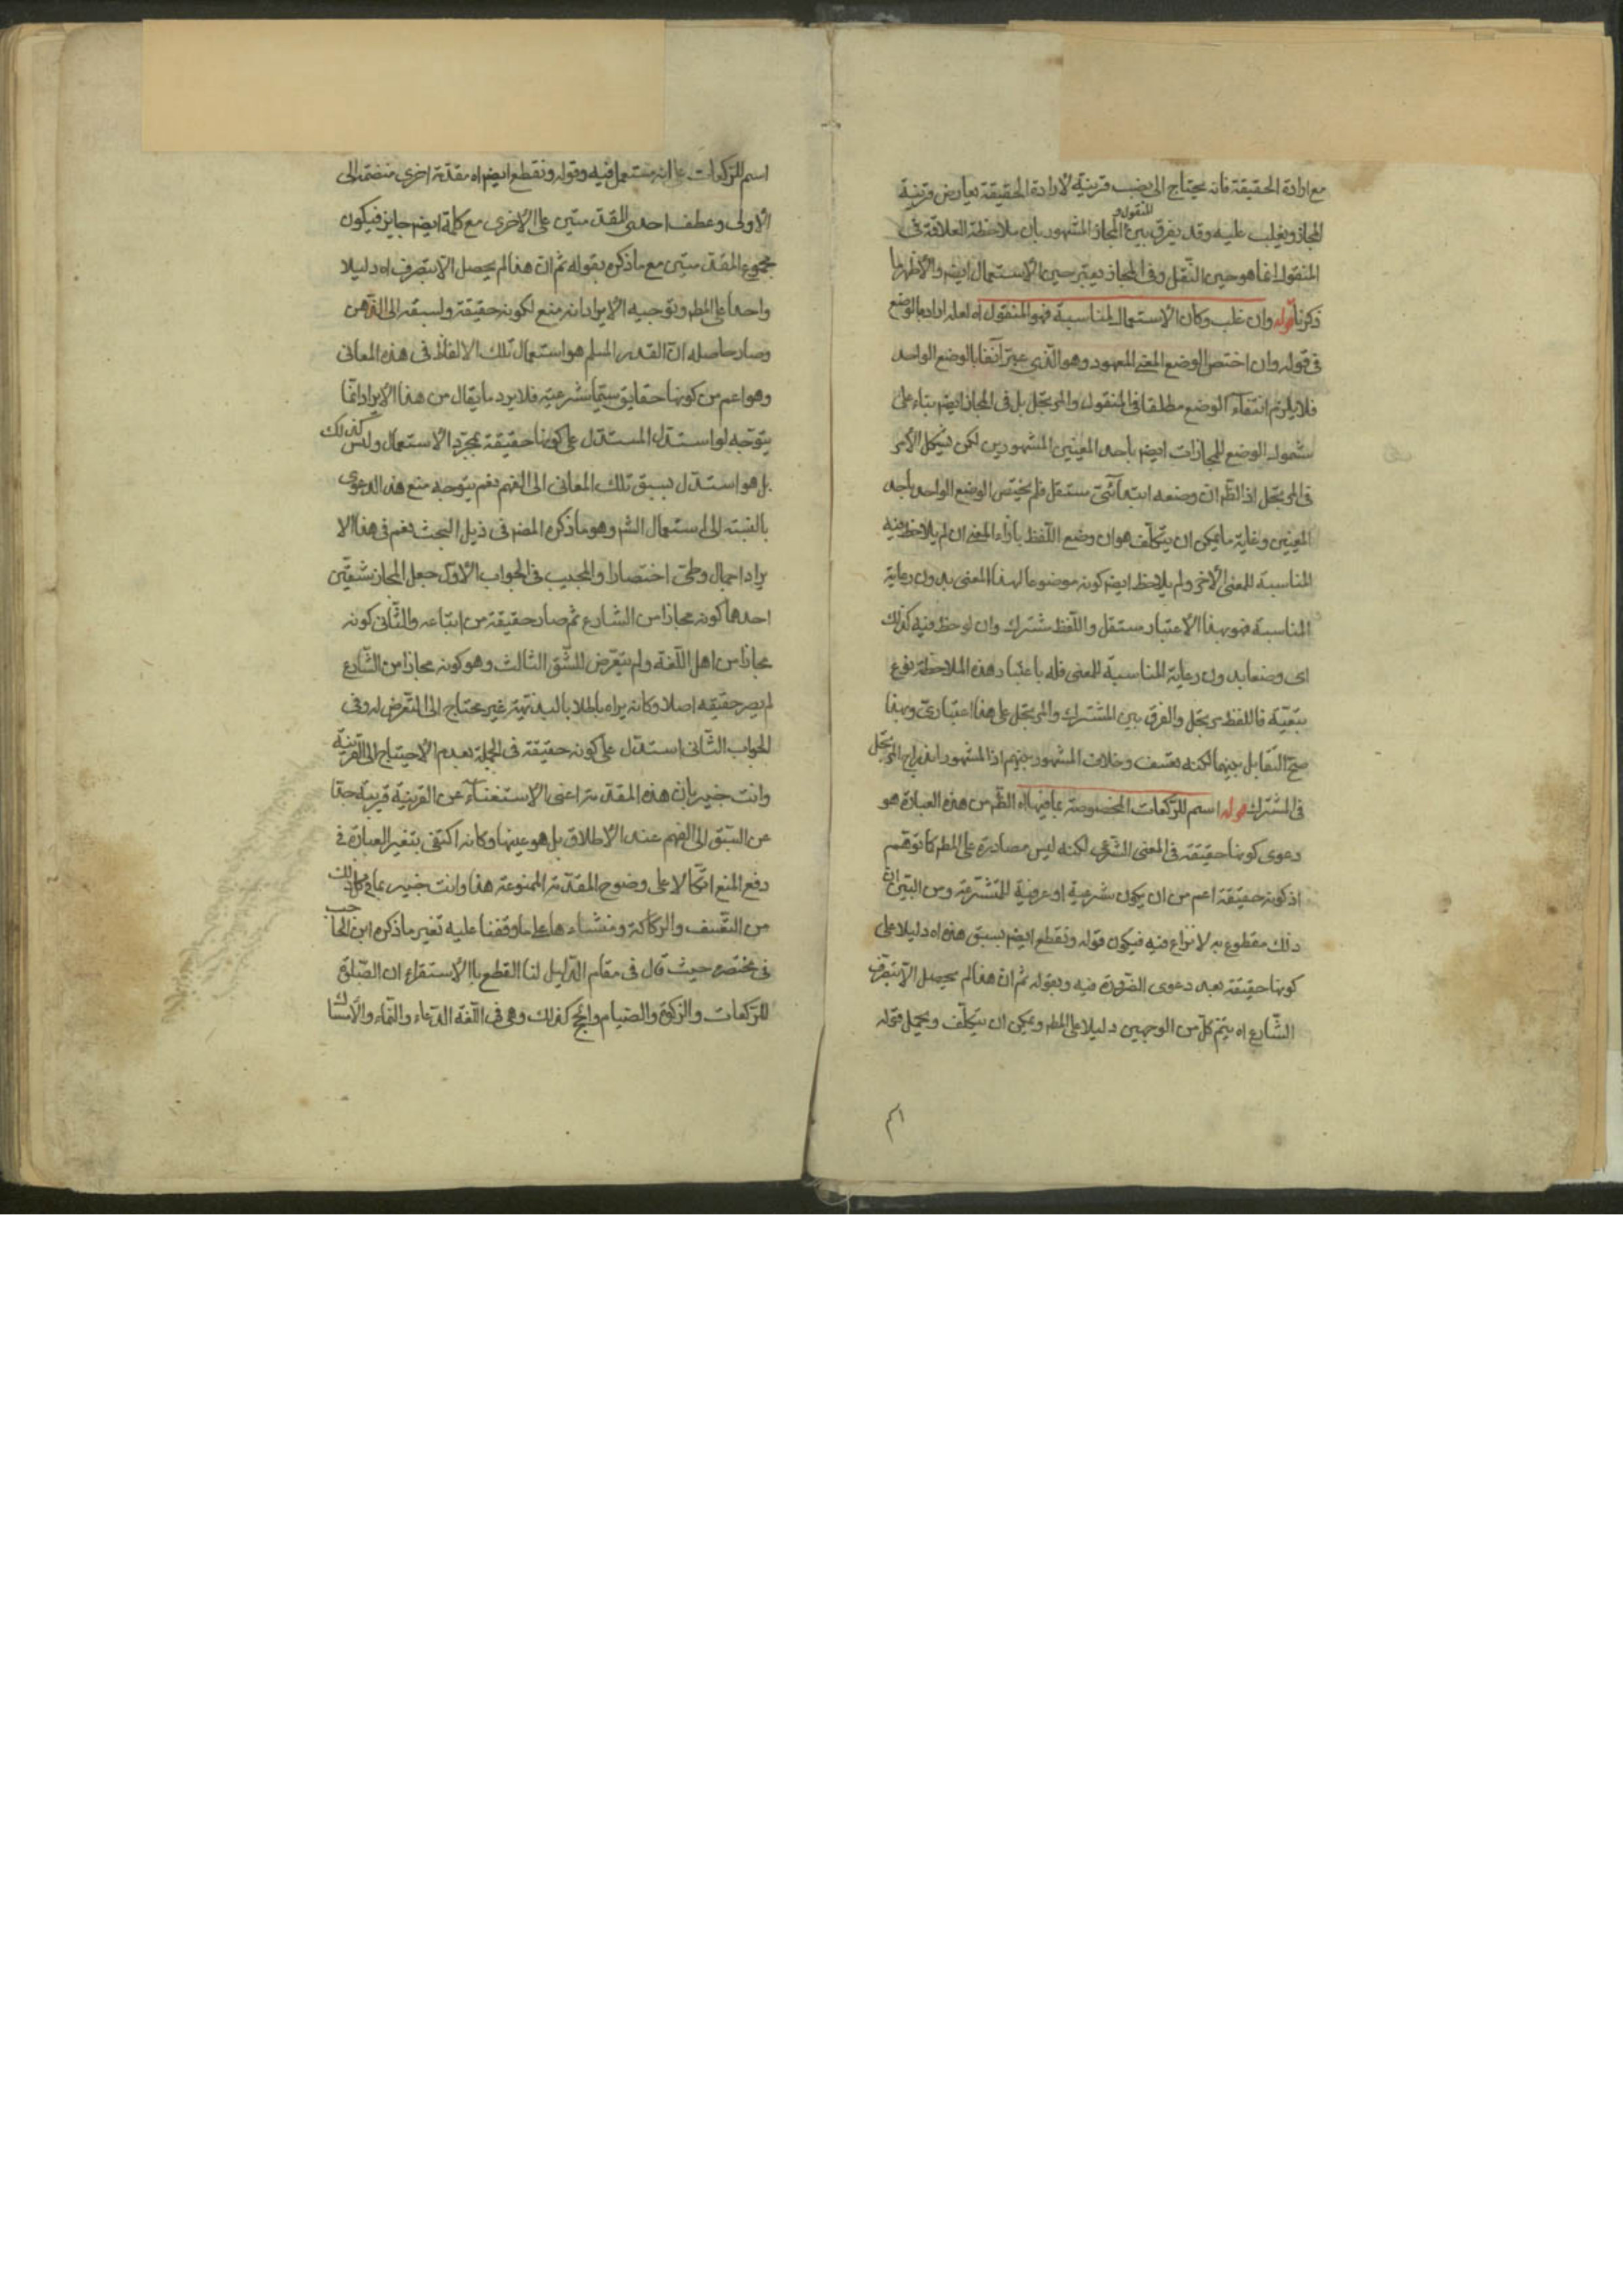 مع ارادة الحقيقة فانه يحتاج الى نصب قرينة لارادة الحقيقة يعارض قرينة
المجاز ويغلب عليه وقد يفرق بين المنقول و المجاز المشهور بان ملاحظة العلاقة في
المنقول انما هو حين النقل وفي المجاز يعتبر حين الاستعمال ايضم والاظهر ما
ذكرنا قوله وان غلب وكان الاستعمال لمناسبة فهو المنقول اه لعله اراد بالوضع
في قوله وان اختص الوضع المعنى المعهود وهو الذي عبر آنفا بالوضع الواحد
فلا يلزم انتفاء الوضع مطلقا في المنقول والمرتجل بل في المجاز ايضم بناء على
شمول الوضع للمجازات ايضم باحد المعنيين المشهورين لكن يشكل الأمر
في المرتجل اذ الظم ان وضعه ابتدائي مستقل فلم يختص الوضع الواحد باحد
المعنيين وغاية ما يمكن ان يتكلف هو ان وضع اللفظ بازاء المعنى ان لم يلاحظ فيه
المناسبة للمعنى الأخر ولم يلاحظ ايضم كونه موضوعا لهذا المعنى بدون رعاية
المناسبة فهو بهذا الاعتبار مستقل واللفظ مشترك وان لوحظ فيه كذلك
اى وضعا بدون رعاية المناسبة للمعنى فله باعتبار هذه الملاحظة نوع
تبعية فاللفظ مرتجل والفرق بين المشترك والمرتجل على هذا اعتبارى وبهذا
صح التقابل بينهما لكنه تعسف وخلاف المشهور بينهم اذ المشهور اندراج المرتجل
في المشترك قوله اسم للركعات المخصوصة بما فيها اه الظم من هذه العبارة هو
دعوى كونها حقيقة في المعنى الشرعى لكنه ليس مصادرة على المطم كما توهم
اذ كونه حقيقة اعم من ان يكون شرعية او عرفية للمتشرعة ومن البين ان
ذلك مقطوع به لا نزاع فيه فيكون قوله ونقطع ايضم بسبق هذه اه دليلا على
كونها حقيقة بعد دعوى الضرورة فيه وبقوله ثم ان هذا لم يحصل الا بتصرف
الشارع اه يتم كل من الوجهين دليلا على المطم ويمكن ان يتكلف ويحمل قوله
اسم للركعات على انه مستعمل فيه وقوله ونقطع ايضم اه مقدمة اخرى منضمة الى
الأولى وعطف احدى المقدمتين على الاخرى مع كلمة ايضم جايز فيكون
مجموع المقدمتين مع ما ذكره بقوله ثم ان هذا لم يحصل الا بتصرف اه دليلا
واحدا على المطم وتوجيه الايراد انه منع لكونه حقيقة ولسبقه الى الذهن
وصار حاصله ان القدر المسلم هو استعمال تلك الالفاظ في هذه المعانى
وهو اعم من كونها حقايق سيما شرعية فلا يرد ما يقال من هذا الايراد انما
يتوجه لو استدل المستدل على كونها حقيقة بمجرد الاستعمال وليس كذلك
بل هو استدل بسبق تلك المعانى الى الفهم نعم يتوجه منع هذه الدعوى
بالنسبة الى استعمال الشم وهو ما ذكره المصم في ذيل البحث نعم في هذا الا
يراد اجمال وطى اختصارا والمجيب في الجواب الاول جعل المجاز بشقين
احدهما كونه مجازا من الشارع ثم صار حقيقة من اتباعه والثانى كونه
مجازا من اهل اللغة ولم يتعرض للشق الثالث وهو كونه مجازا من الشارع
لم يصر حقيقه اصلا وكانه يراه باطلا بالبديهية غير محتاج الى التعرض له وفى
الجواب الثانى استدل على كونه حقيقة في الجملة بعدم الاحتياج الى القرينة
وانت خبير بان هذه المقدمة اعنى الاستغناء عن القرينة قريبة جدا
عن السبق الى الفهم عند الاطلاق بل هو عينها وكانه اكتفى بتغير العبارة في
دفع المنع اتكالا على وضوح المقدمة الممنوعة هذا وانت خبير بما في ذلك
من التعسف والركاكة ومنشاء ها على ما وقفنا عليه تغير ما ذكره ابن الحاجب
في مختصره حيث قال في مقام الدليل لنا القطع باالاستقراء ان الصلوة
للركعات والزكوة والصيام والحج كذلك وهى في اللغة الدعاء والنماء والأمساك